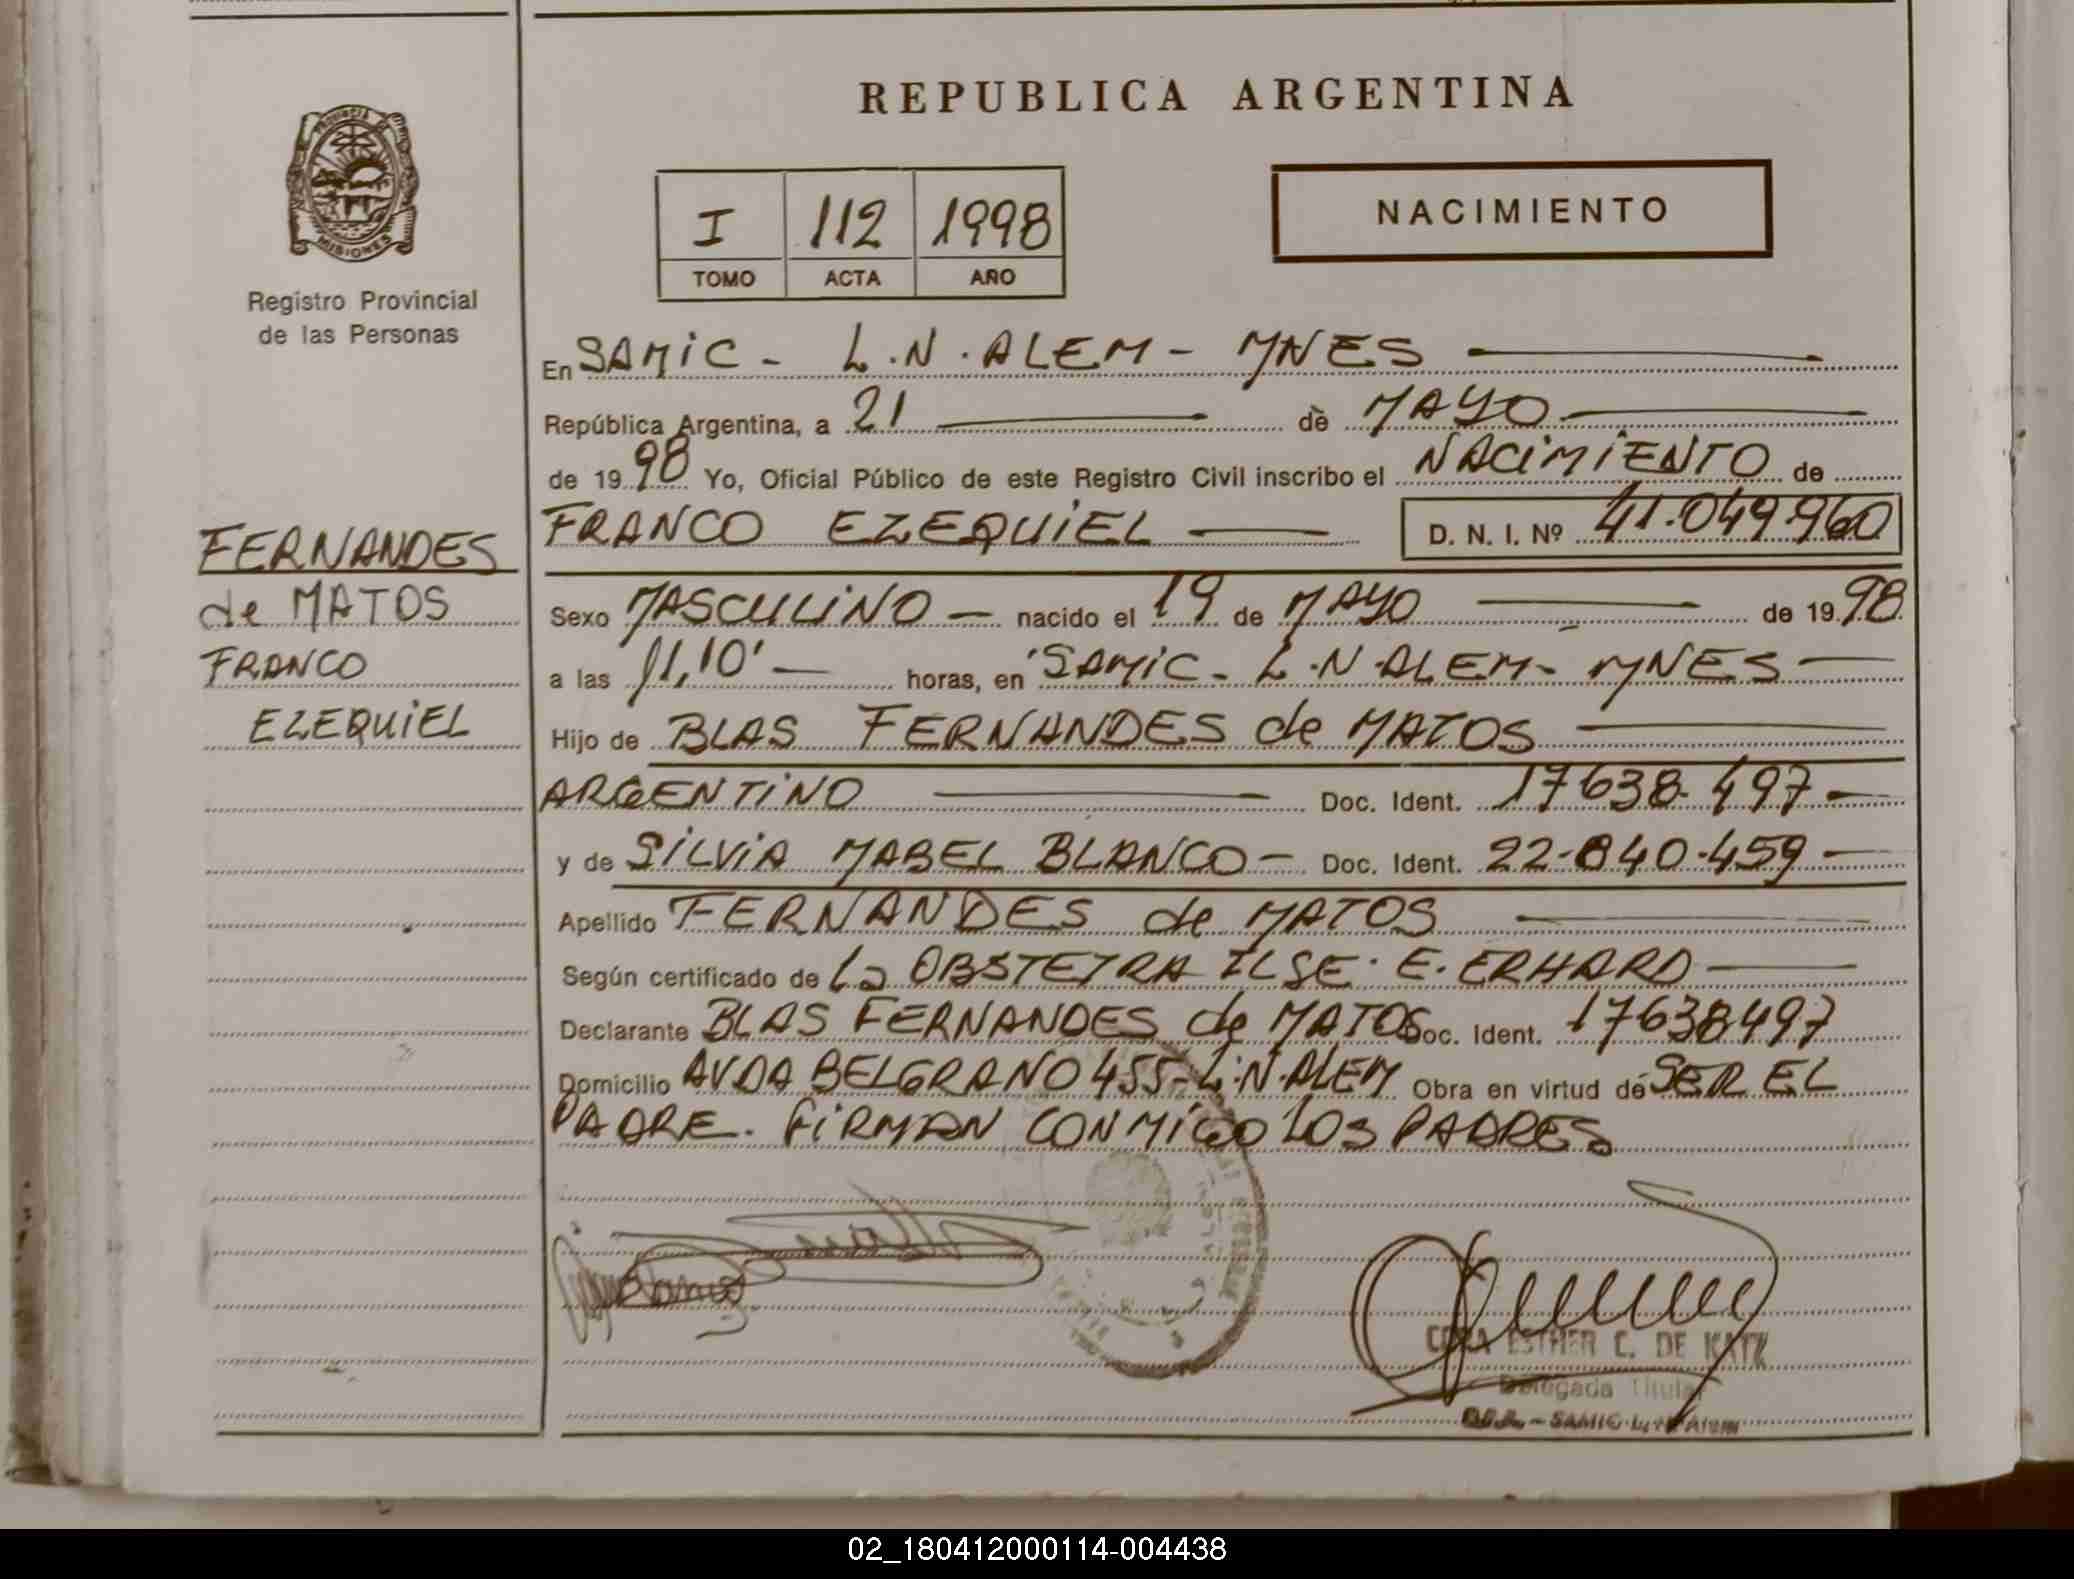 REPUBLICA ARGENTINA
PROVINCIA DE
MISIONES
Registro Provincial
de las Personas
I 112 1998
TOMO ACTA AÑO
NACIMIENTO
FERNANDES
de MATOS
FRANCO
EZEQUIEL
En SAMIC - L.N. ALEM - MNES
República Argentina, a 21 de MAYO
de 1998 Yo, Oficial Público de este Registro Civil inscribo el NACIMIENTO de
FRANCO EZEQUIEL D. N. I. Nº 41.049.960
Sexo MASCULINO - nacido el 19 de MAYO de 1998
a las 11,10' horas, en SAMIC - L.N. ALEM - MNES
Hijo de BLAS FERNANDES de MATOS
ARGENTINO Doc. Ident. 17638.497 -
y de SILVIA MABEL BLANCO - Doc. Ident. 22.840.459 -
Apellido FERNANDES de MATOS
Según certificado de La OBSTETRA ILSE E. ERHARD
Declarante BLAS FERNANDES de MATOS Doc. Ident. 17638497
Domicilio AVDA BELGRANO 455 - L.N. ALEM Obra en virtud de SER EL
PADRE. FIRMAN CONMIGO LOS PADRES
CORA ESTHER C. DE KATZ
Delegada Titular
SAMIC L.N. Alem
02_180412000114-004438